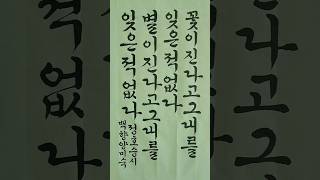 꽃이 진다고 그대를
잊은 적 없다
별이 진다고 그대를
잊은 적 없다
정호승 시